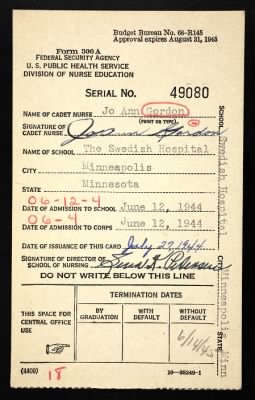 Budget Bureau No. 68-R145
Approval expires August 31, 1945
Form 300A
FEDERAL SECURITY AGENCY
U. S. PUBLIC HEALTH SERVICE
DIVISION OF NURSE EDUCATION
SERIAL NO. 49080
NAME OF CADET NURSE Jo Ann Gordon
(PRINT OR TYPE)
SIGNATURE OF CADET NURSE Jo Ann Gordon
NAME OF SCHOOL The Swedish Hospital
CITY Minneapolis
STATE Minnesota
06-12-4
DATE OF ADMISSION TO SCHOOL June 12, 1944
06-4
DATE OF ADMISSION TO CORPS June 12, 1944
DATE OF ISSUANCE OF THIS CARD July 27, 1944
SIGNATURE OF DIRECTOR SCHOOL OF NURSING
DO NOT WRITE BELOW THIS LINE
THIS SPACE FOR CENTRAL OFFICE USE
TERMINATION DATES
BY GRADUATION
WITH DEFAULT
WITHOUT DEFAULT
6/14/45
(4409)
18
16—38249-1
SCHOOL Swedish Hospital
Minneapolis, Minn
STATE